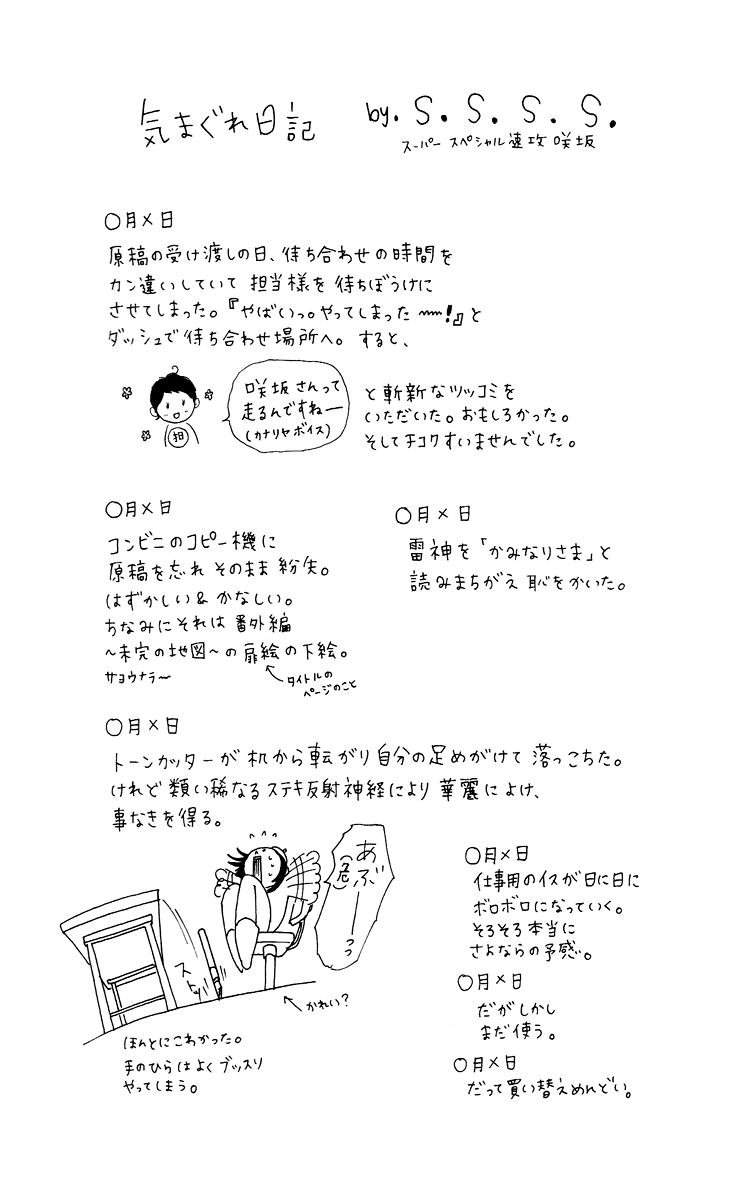 気まぐれ日記
by. S. S. S. S.
スーパー スペシャル速攻 咲坂
○月×日
原稿の受け渡しの日、待ち合わせの時間を
カン違いしていて 担当様を 待ちぼうけに
させてしまった。『やばいっ。やってしまった〜〜!』と
ダッシュで待ち合わせ場所へ。 すると、
担
咲坂さんって
走るんですねー
(カナリヤボイス)
と斬新なツッコミを
いただいた。おもしろかった。
そしてチコクすいませんでした。
○月×日
コンビニのコピー機に
原稿を忘れ そのまま 紛失。
はずかしい & かなしい。
ちなみにそれは 番外編
~未完の地図~の扉絵の下絵。
サヨウナラ〜
タイトルの
ページのこと
○月×日
雷神を「かみなりさま」と
読みまちがえ 恥をかいた。
○月×日
トーンカッターが机から転がり自分の足めがけて 落っこちた。
けれど 類い稀なるステキ反射神経により 華麗によけ、
事なきを得る。
あぶーーっっ
(危)
ストッ
かれい?
ほんとにこわかった。
手のひらはよくブッスリ
やってしまう。
○月×日
仕事用のイスが日に日に
ボロボロになっていく。
そろそろ本当に
さよならの予感。
○月×日
だがしかし
まだ使う。
○月×日
だって買い替えめんどい。